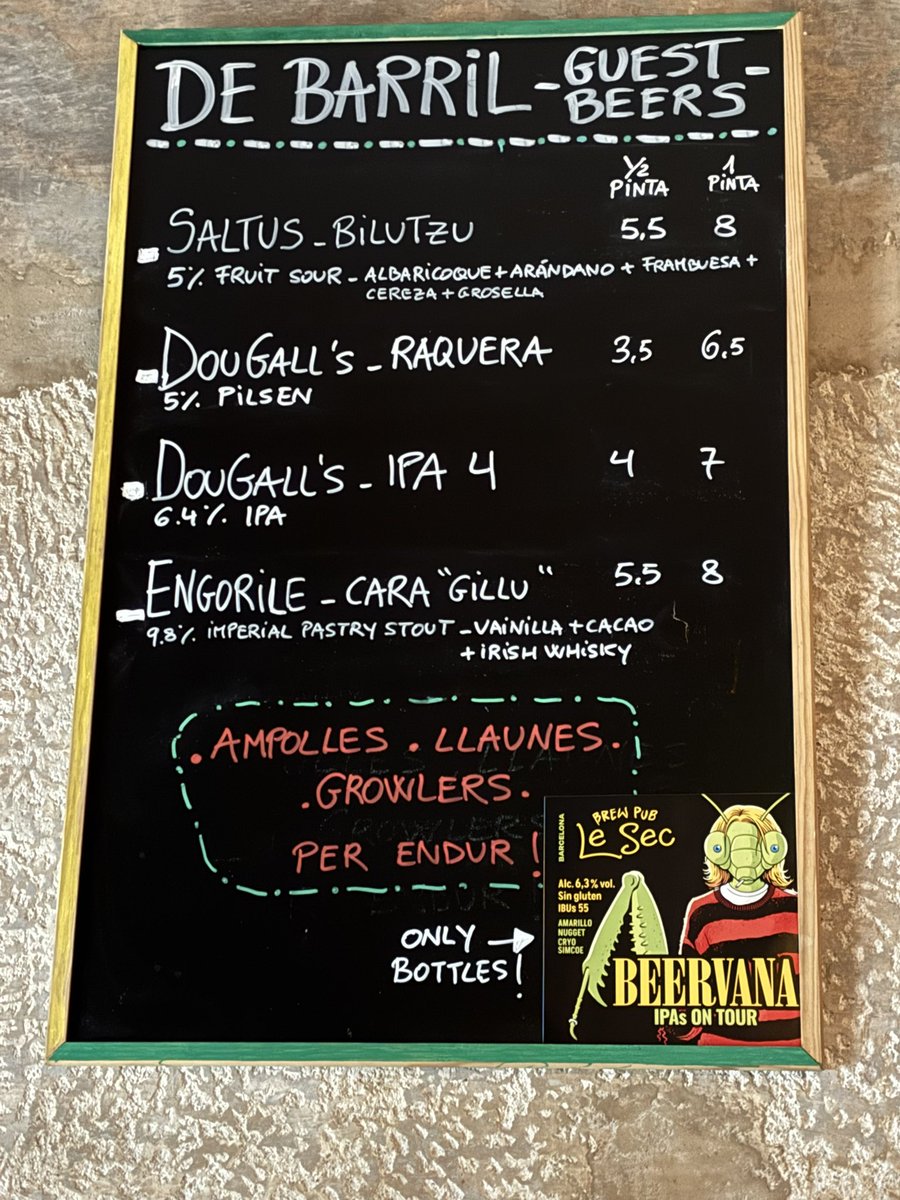 DE BARRIL - GUEST BEERS -
1/2 PINTA 1 PINTA
SALTUS - BILUTZU 5,5 8
5% FRUIT SOUR - ALBARICOQUE + ARÁNDANO + FRAMBUESA +
CEREZA + GROSELLA
DOUGALL'S - RAQUERA 3,5 6,5
5% PILSEN
DOUGALL'S - IPA 4 4 7
6.4% IPA
ENGORILE - CARA "GILLU" 5.5 8
9.8% IMPERIAL PASTRY STOUT - VAINILLA + CACAO
+ IRISH WHISKY
. AMPOLLES . LLAUNES .
. GROWLERS .
PER ENDUR !
ONLY →
BOTTLES !
BARCELONA
BREW PUB
Le Sec
Alc. 6,3% vol.
Sin gluten
IBUs 55
AMARILLO
NUGGET
CRYO
SIMCOE
BEERVANA
IPAs ON TOUR